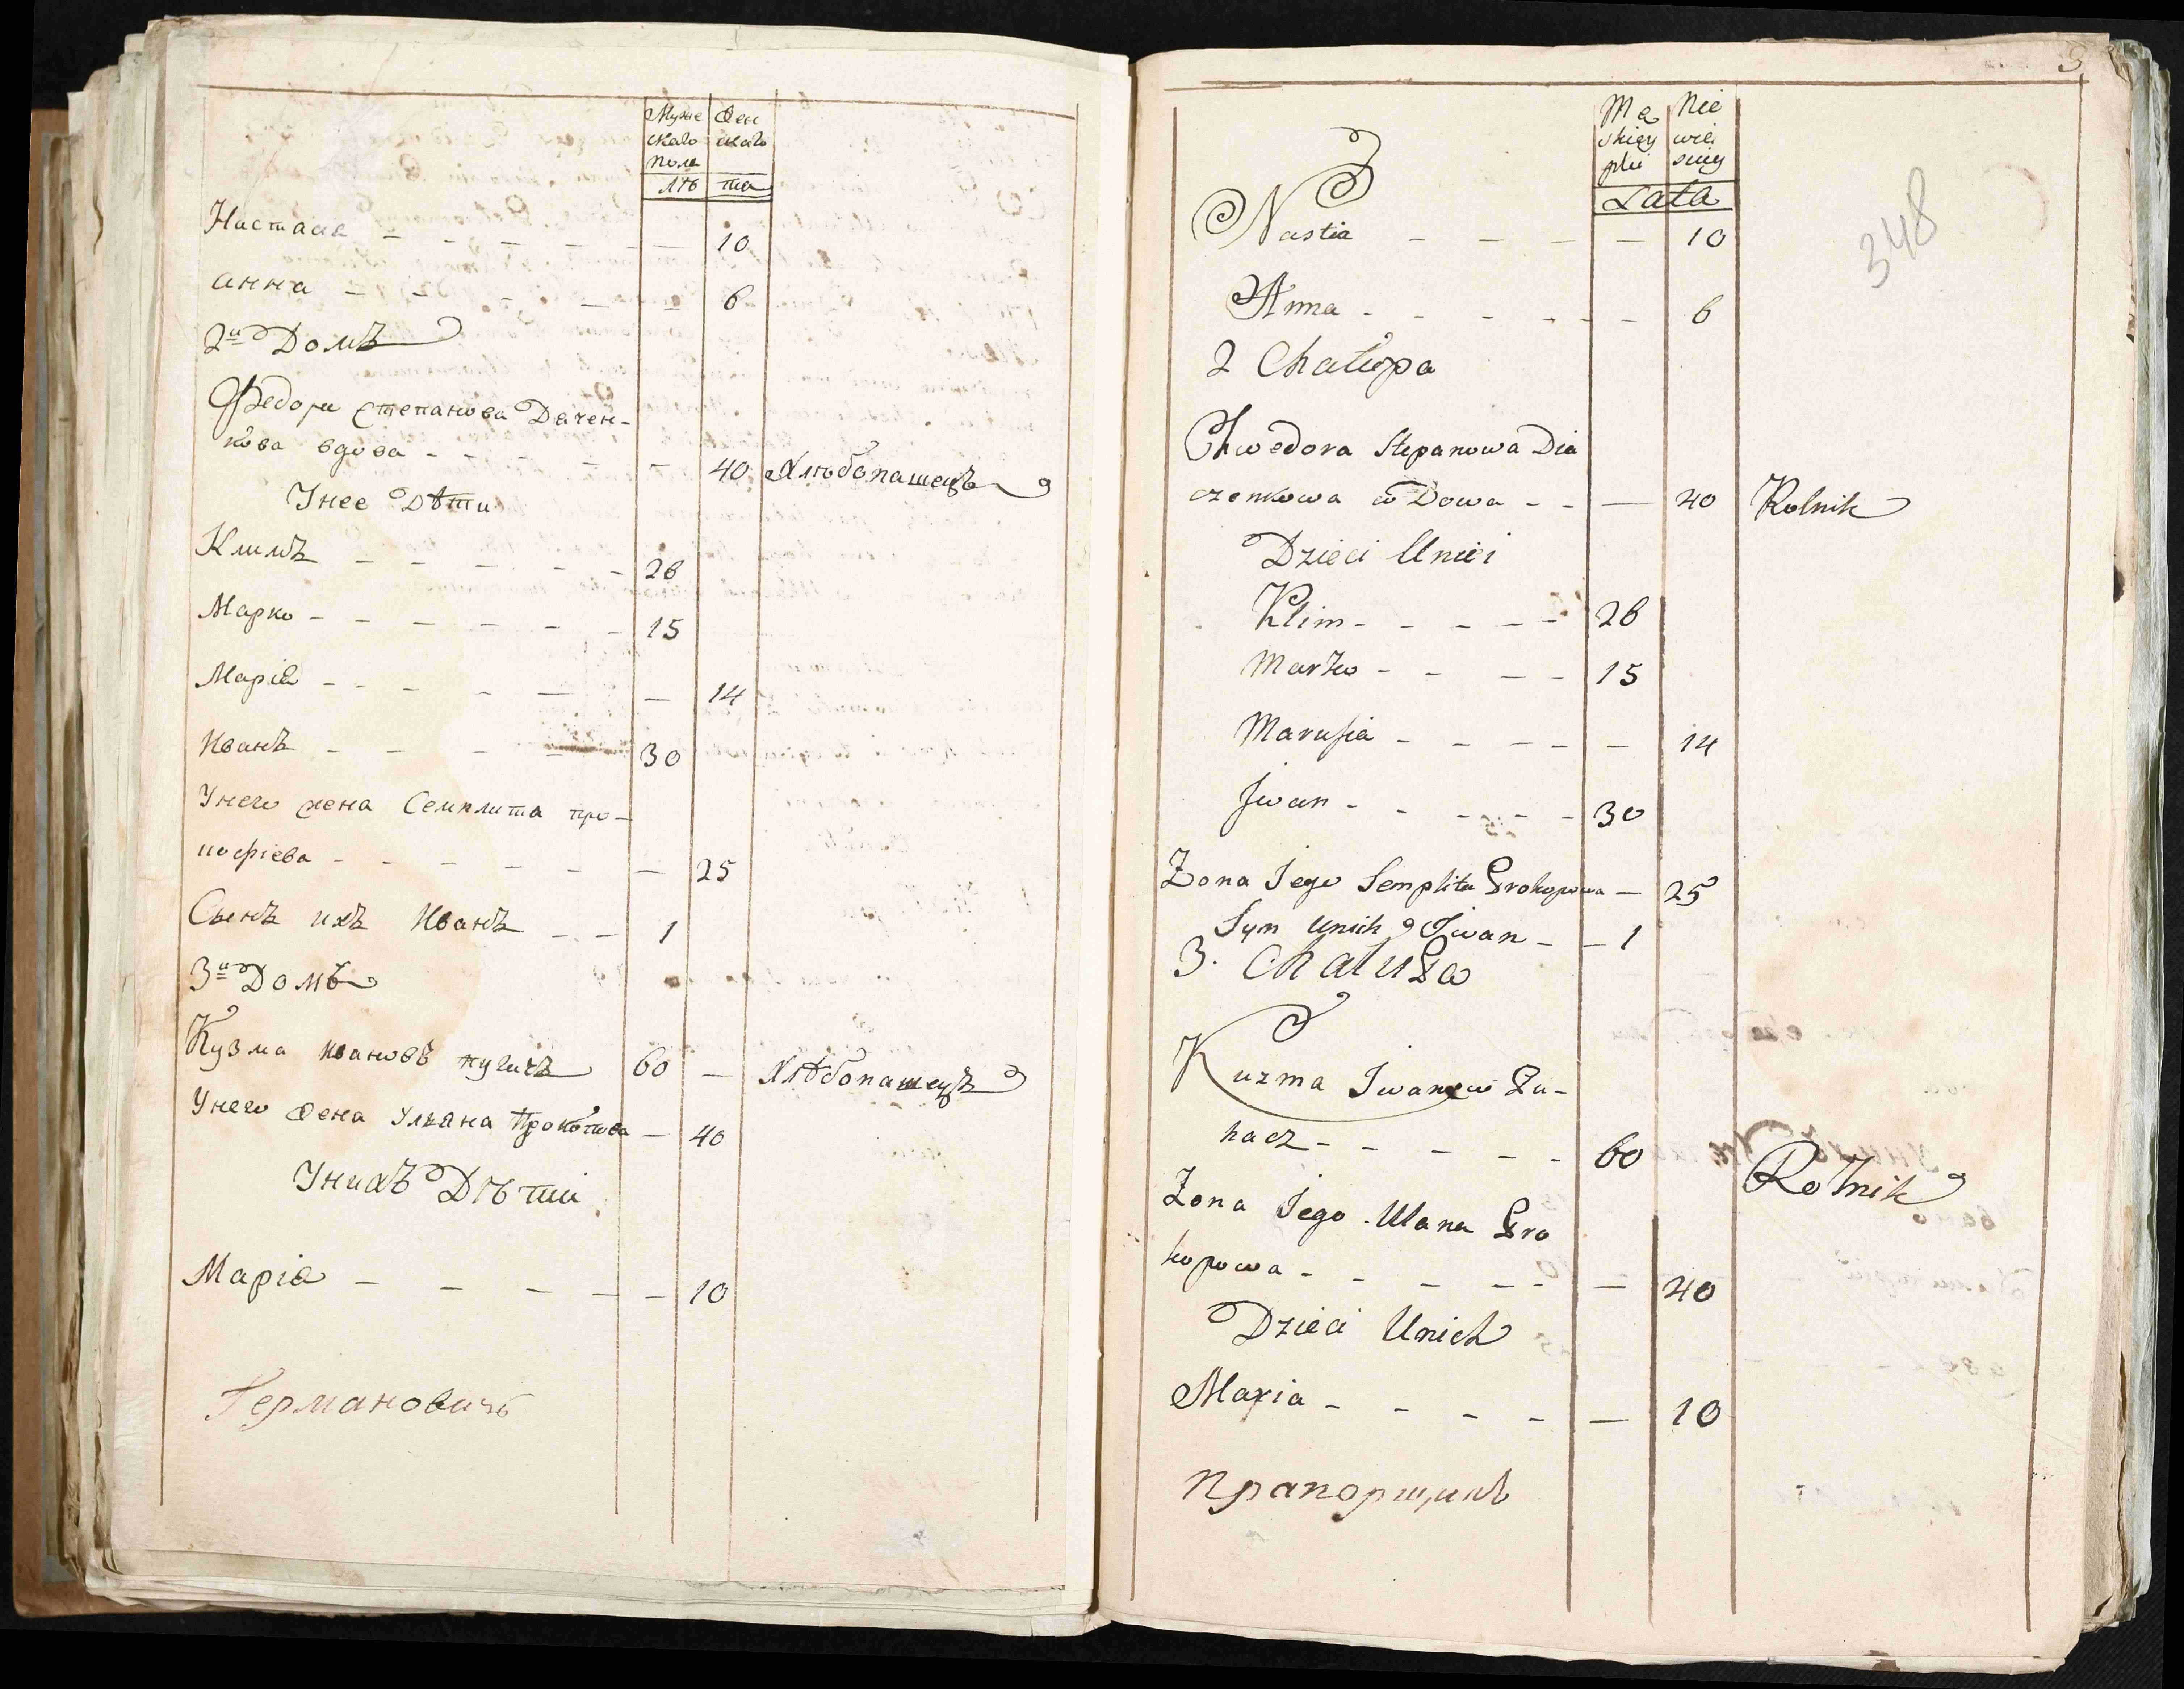 Муже Жен
скаго скаго
пола
лѣ та
Настася - - - - - - 10
анна - - - - - 6
2й Домъ
Федора степанова Дячен-
кова вдова - - - - - 40 Хлѣбопашецъ
Унее Дѣти
Климъ - - - - - 26
Марко - - - - - - 15
Марія - - - - - - 14
Иванъ - - - - 30
Унего жена Семплита про-
кофіева - - - - - - 25
Сынъ ихъ Иванъ - - 1
3й Домъ
Кузма Ивановъ пугачъ 60 - Хлѣбопашецъ
Унего жена Ульяна Прокопова - 40
Унихъ Дѣти
Марія - - - - - 10
Германовичь
3
Mę Nie
skiey wie
płci sciey
Lata
348
Nastia - - - - - 10
Anna - - - - - - 6
2 Chałupa
Chwedora Stepanowa Dia
czenkowa wDowa - - - 40 Rolnik
Dzieci Uniei
Klim - - - - - 26
Marko - - - - 15
Marusia - - - - - 14
Jwan - - - - - 30
Zona Jego Semplita Prokopowa - 25
Syn Unich Jwan - - 1
3. Chałupa
Kuzma Jwanow Pu-
hacz - - - - - 60 Rolnik
Zona Jego Ulana Pro
kopowa - - - - - - 40
Dzieci Unich
Maria - - - - - 10
прапорщикъ